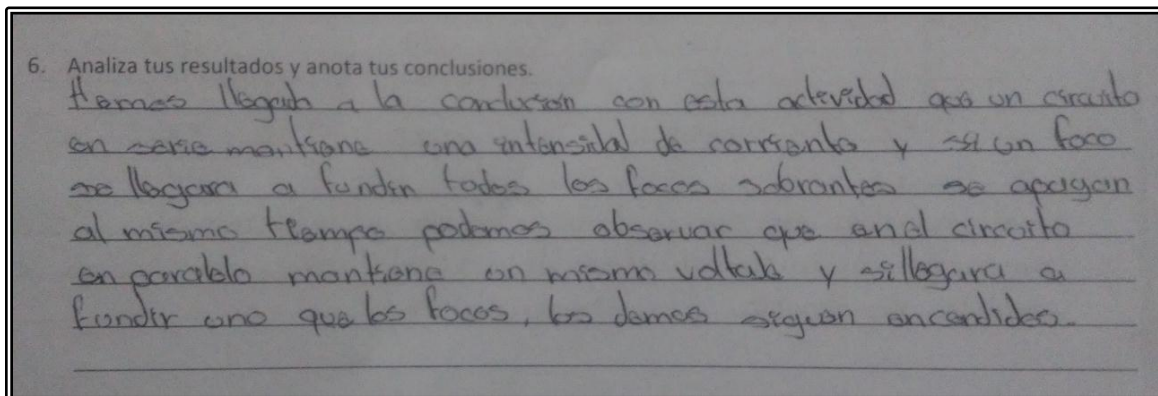 6. Analiza tus resultados y anota tus conclusiones.
Hemos llegado a la conclusión con esta actividad que un circuito
en serie mantiene una intensidad de corriente y si un foco
se llegara a fundir todos los focos sobrantes se apagan
al mismo tiempo podemos observar que en el circuito
en paralelo mantiene un mismo voltale y si llegara a
fundir uno que los focos, los demas siguen encendidos.